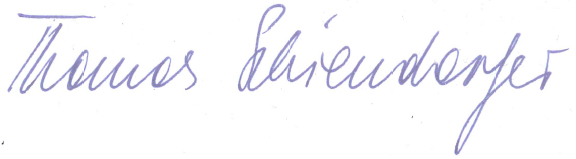 Thomas Schiendorfer